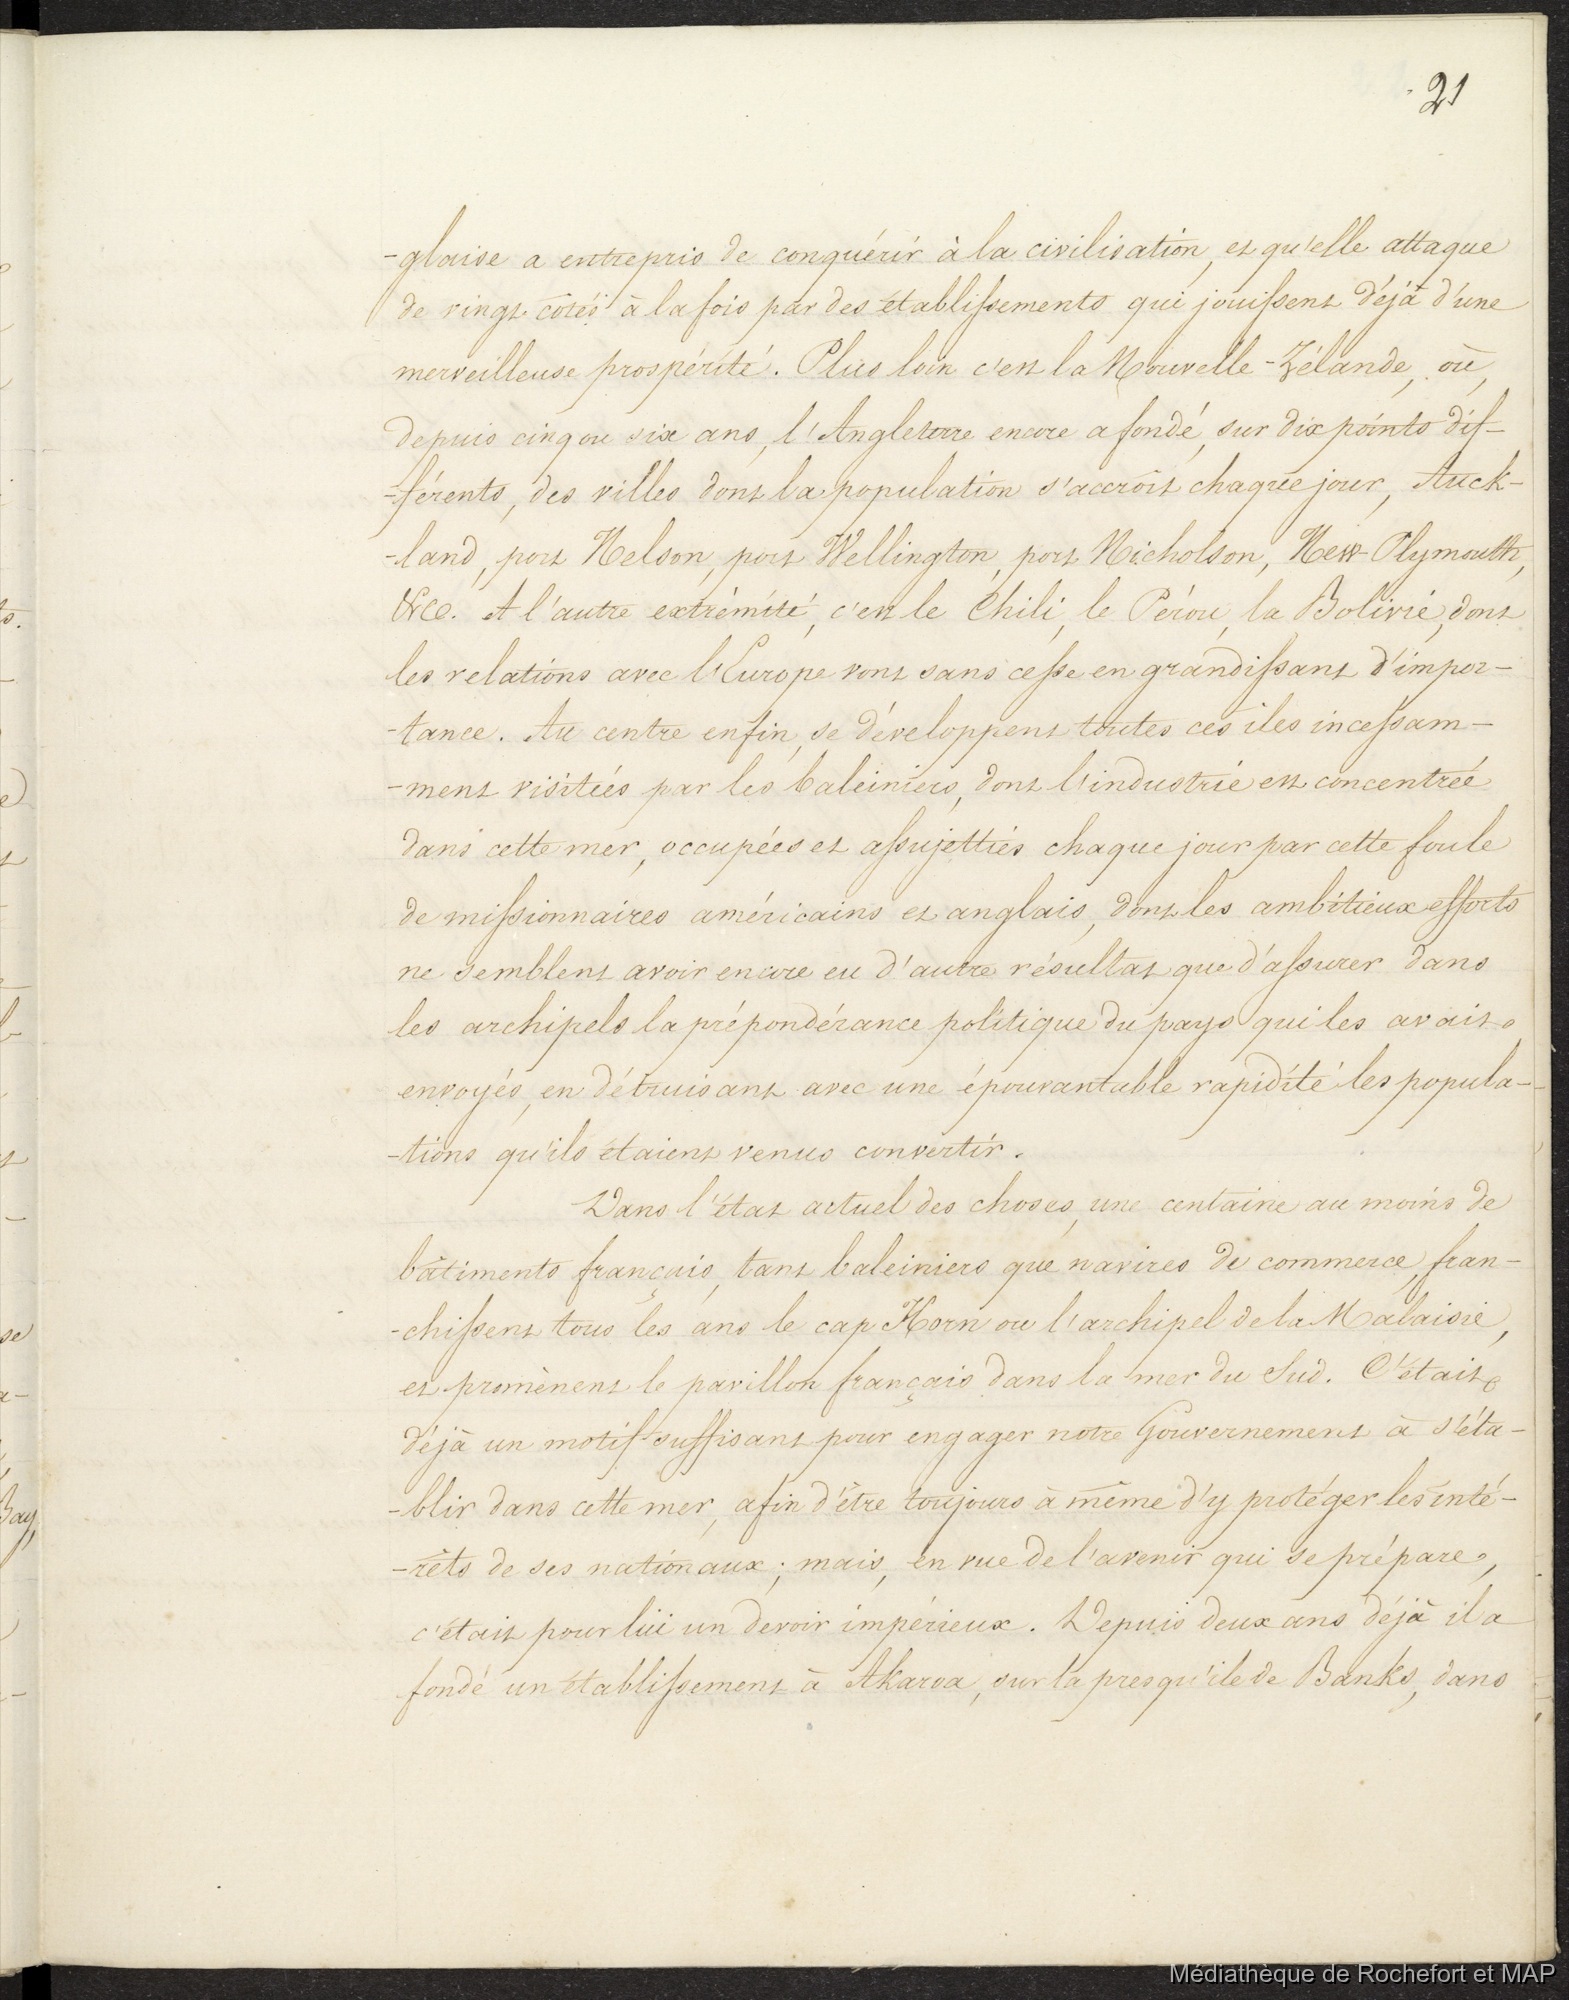 21
-glaise a entrepris de conquérir à la civilisation, et qu'elle attaque
de vingt côtés à la fois par des établissements qui jouissent déjà d'une
merveilleuse prospérité. Plus loin c'est la Nouvelle-Zélande, où,
depuis cinq ou six ans, l'Angleterre encore a fondé, sur dix points dif-
-férents, des villes dont la population s'accroît chaque jour, Auck-
-land, port Nelson, port Wellington, port Nicholson, New-Plymouth,
&ce. A l'autre extrémité, c'est le Chili, le Pérou, la Bolivie, dont
les relations avec l'Europe vont sans cesse en grandissant d'impor-
-tance. Au centre enfin, se développent toutes ces îles incessam-
-ment visitées par les baleiniers, dont l'industrie est concentrée
dans cette mer, occupées et assujetties chaque jour par cette foule
de missionnaires américains et anglais, dont les ambitieux efforts
ne semblent avoir encore eu d'autre résultat que d'assurer dans
les archipels la prépondérance politique du pays qui les avait
envoyés, en détruisant avec une épouvantable rapidité les popula-
-tions qu'ils étaient venus convertir.
Dans l'état actuel des choses, une centaine au moins de
bâtiments français, tant baleiniers que navires de commerce, fran-
-chissent tous les ans le cap Horn ou l'archipel de la Malaisie,
et promènent le pavillon français dans la mer du Sud. C'était
déjà un motif suffisant pour engager notre Gouvernement à s'éta-
-blir dans cette mer, afin d'être toujours à même d'y protéger les inté-
-rêts de ses nationaux ; mais, en vue de l'avenir qui se prépare,
c'était pour lui un devoir impérieux. Depuis deux ans déjà il a
fondé un établissement à Akaroa, sur la presqu'île de Banks, dans
Médiathèque de Rochefort et MAP